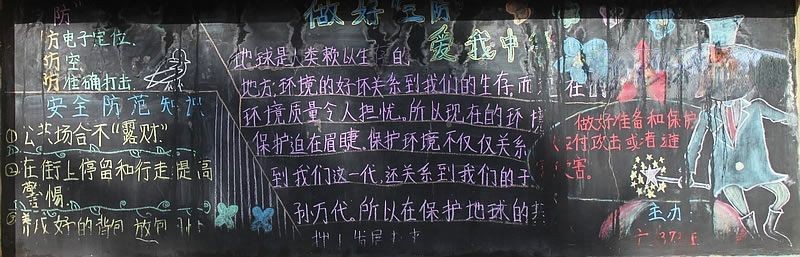 "防"
防电子定位.
防空.
防准确打击.
安全防范知识
①公共场合不"露财"
②在街上停留和行走,提高
警惕.
③养成好的背包放包习
做好"三防"
爱我中
地球是人类赖以生存的
地方,环境的好坏关系到我们的生存,而
环境质量令人担忧。所以现在的环境
保护迫在眉睫,保护环境不仅仅关系
到我们这一代,还关系到我们的子
孙万代。所以在保护地球的
在
做好准备和保护
应付攻击或者避
灾害。
主办: